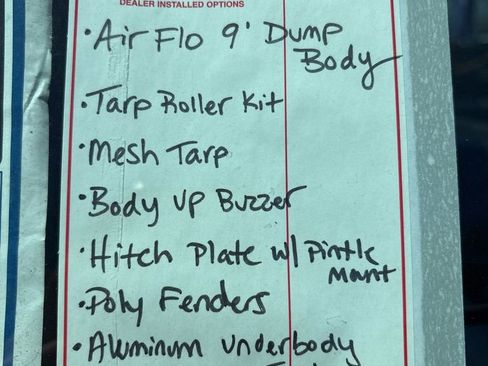 DEALER INSTALLED OPTIONS
• Air Flo 9' Dump
Body
• Tarp Roller Kit
• Mesh Tarp
• Body Up Buzzer
• Hitch Plate w/ Pintle
Mount
• Poly Fenders
• Aluminum Underbody